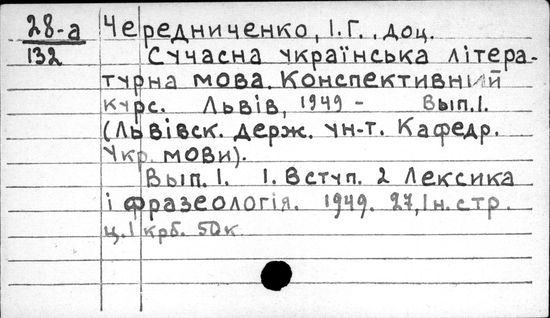 28-а Чередниченко, І.Г., доц.
132 Сучасна українська літера-
турна мова. Конспективний
курс. Львів, 1949 - Вып.1.
(Львівск. держ. ун-т. Кафедр.
Укр. мови).
Вып. 1. 1. Вступ. 2 Лексика
і фразеологія. 1949. 27, 1 н. стр.
ц. 1 крб. 50 к.